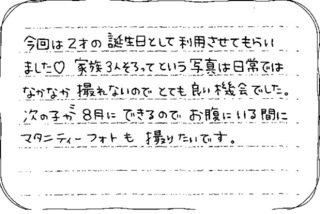 今回は2才の誕生日として利用させてもらい
ました♡ 家族3人そろってという写真は日常では
なかなか撮れないのでとても良い機会でした。
次の子が8月にできるのでお腹にいる間に
マタニティーフォトも撮りたいです。